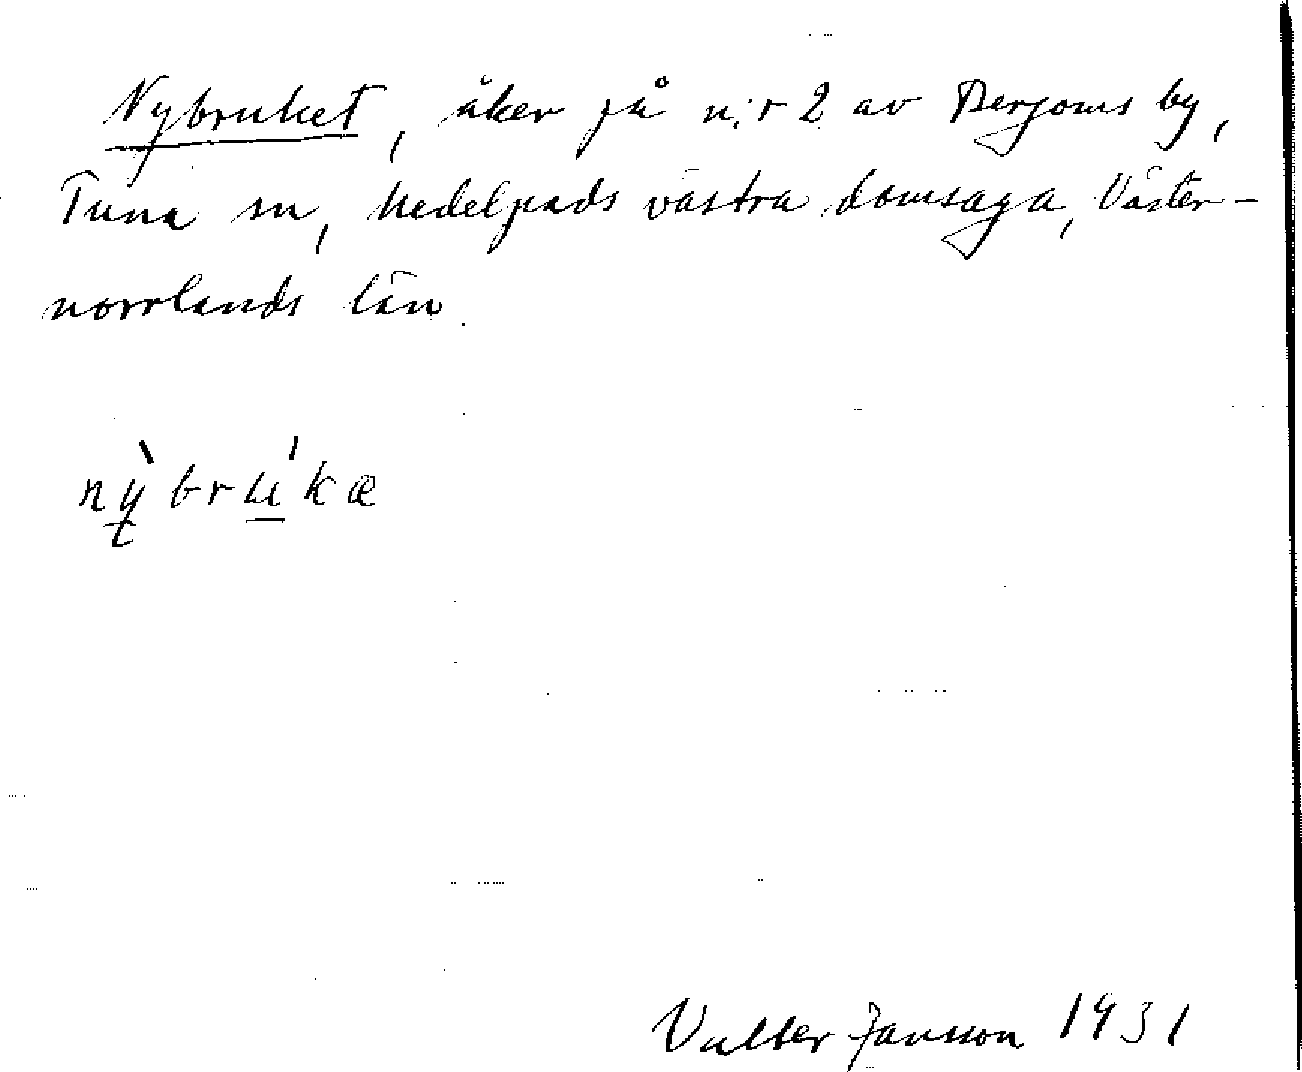 Nybruket, åker på n:r 2 av Bergoms by,
Tuna sn, Medelpads västra domsaga, Väster-
norrlands län.
nỳbru̲'kæ
Valter Jansson 1931